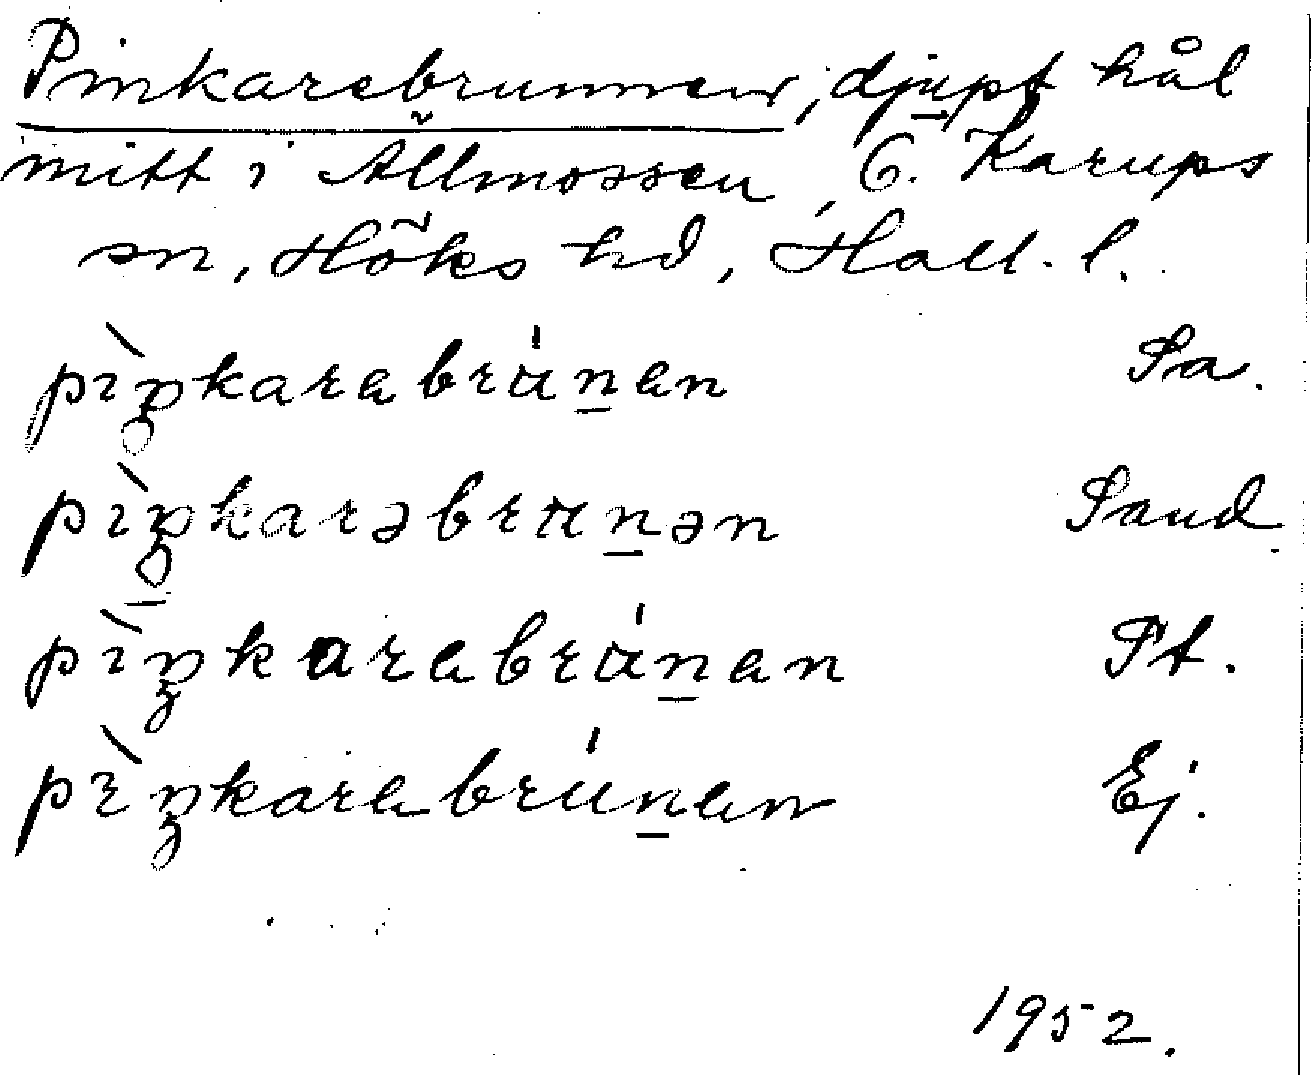 Pinkarebrunnen, djupt hål
mitt i Ållmossen, Ö. Karups
sn, Höks hd, Hall. l.
pìŋkarabrúnan Sa.
pìŋkarəbrunən Sand.
pìŋkarabrúnan Pt.
pìŋkarabrúnan Ej.
1952.